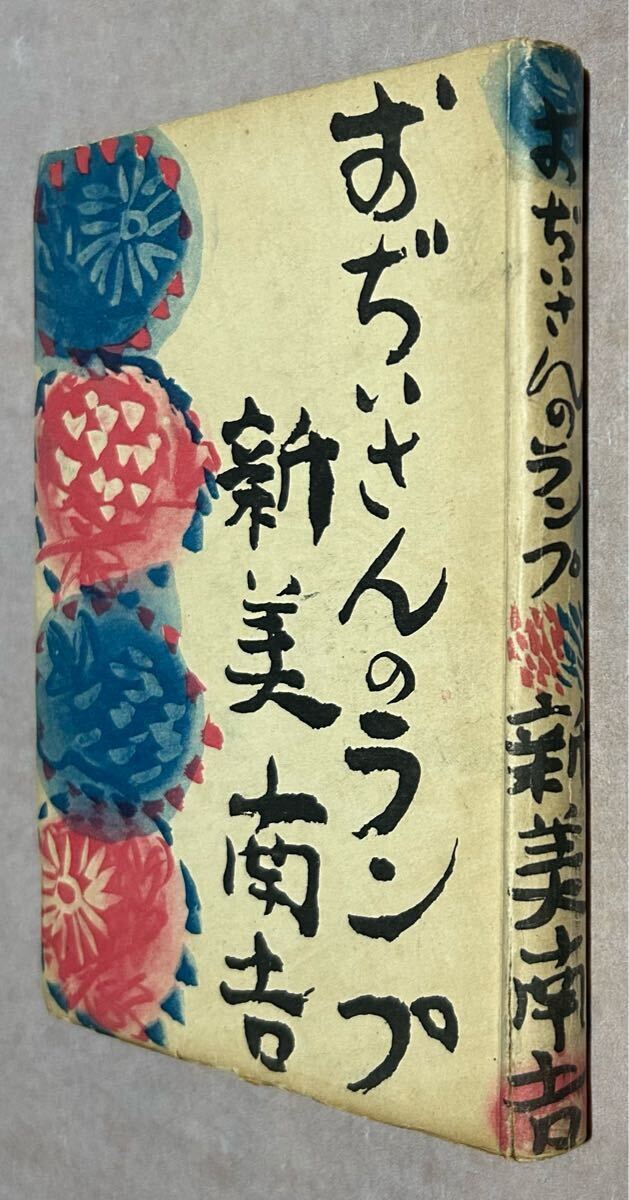 おぢいさんのランプ
新美南吉
おぢいさんのランプ
新美南吉